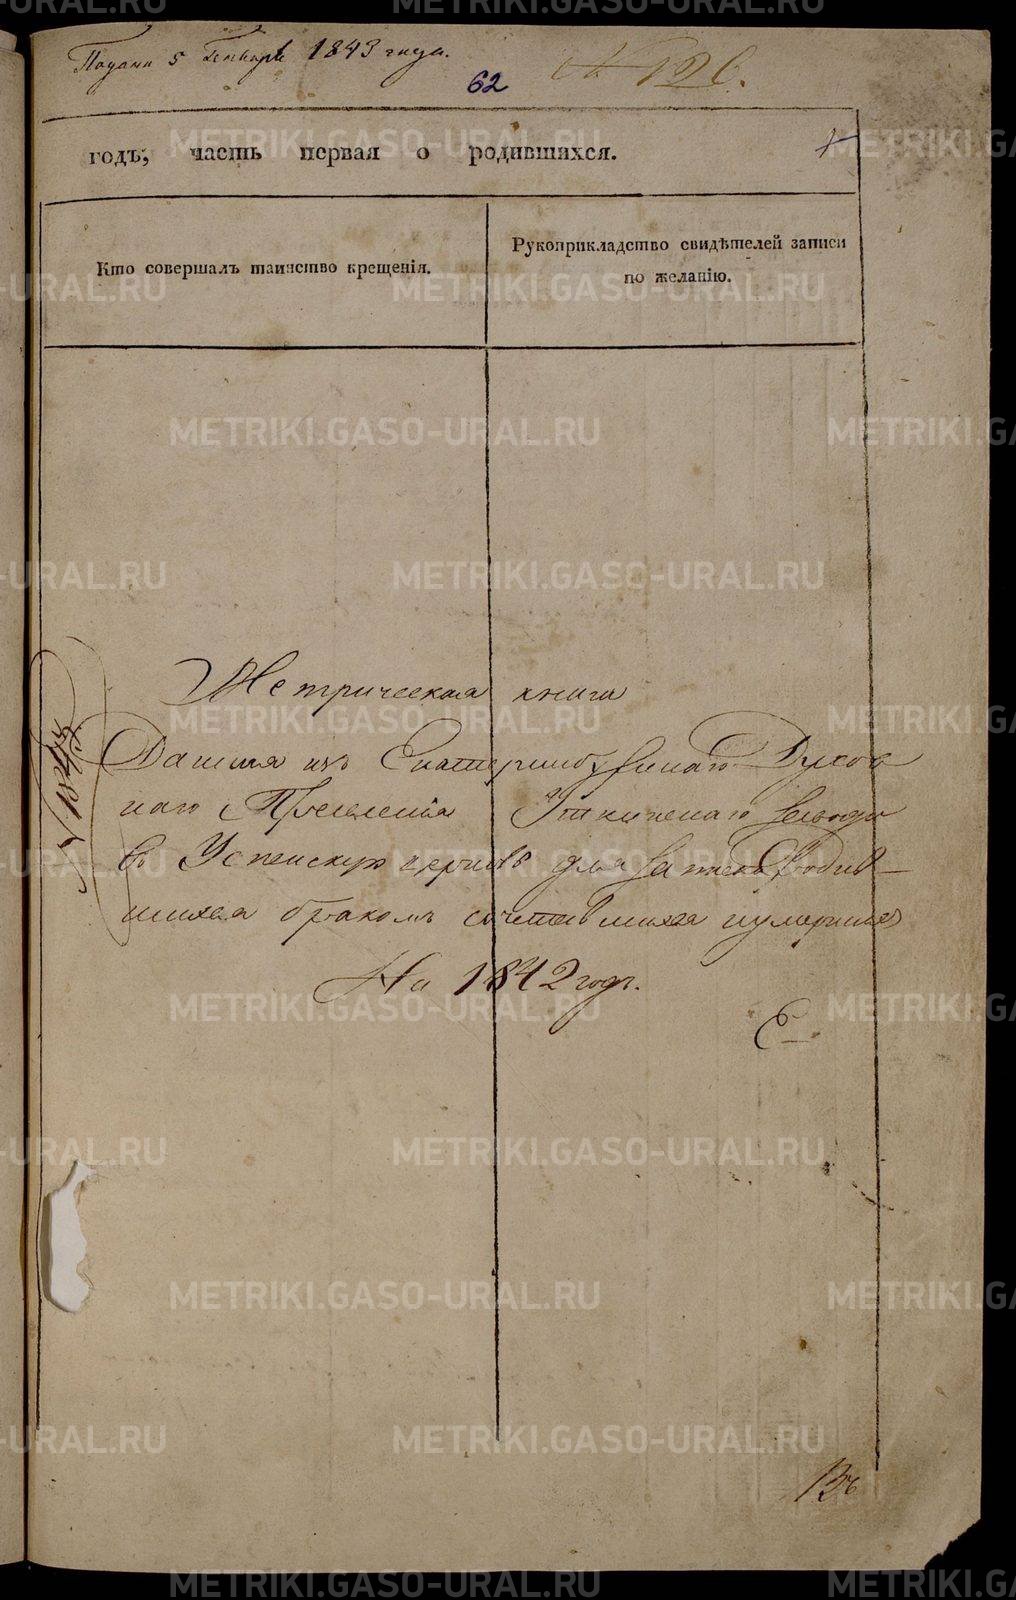 Подана 5 Генваря 1843 года.
62
№ 126.
годъ, часть первая о родившихся.
Кто совершалъ таинство крещенія.
Рукоприкладство свидѣтелей записи
по желанію.
Метрическая книга
Данная изъ Екатеринбургскаго Духов
наго Правленія Уткинскаго завода
въ Успенскую церковь для записи родив-
шихся бракомъ сочетавшихся и умершихъ
На 1842 годъ.
METRIKI.GASO-URAL.RU